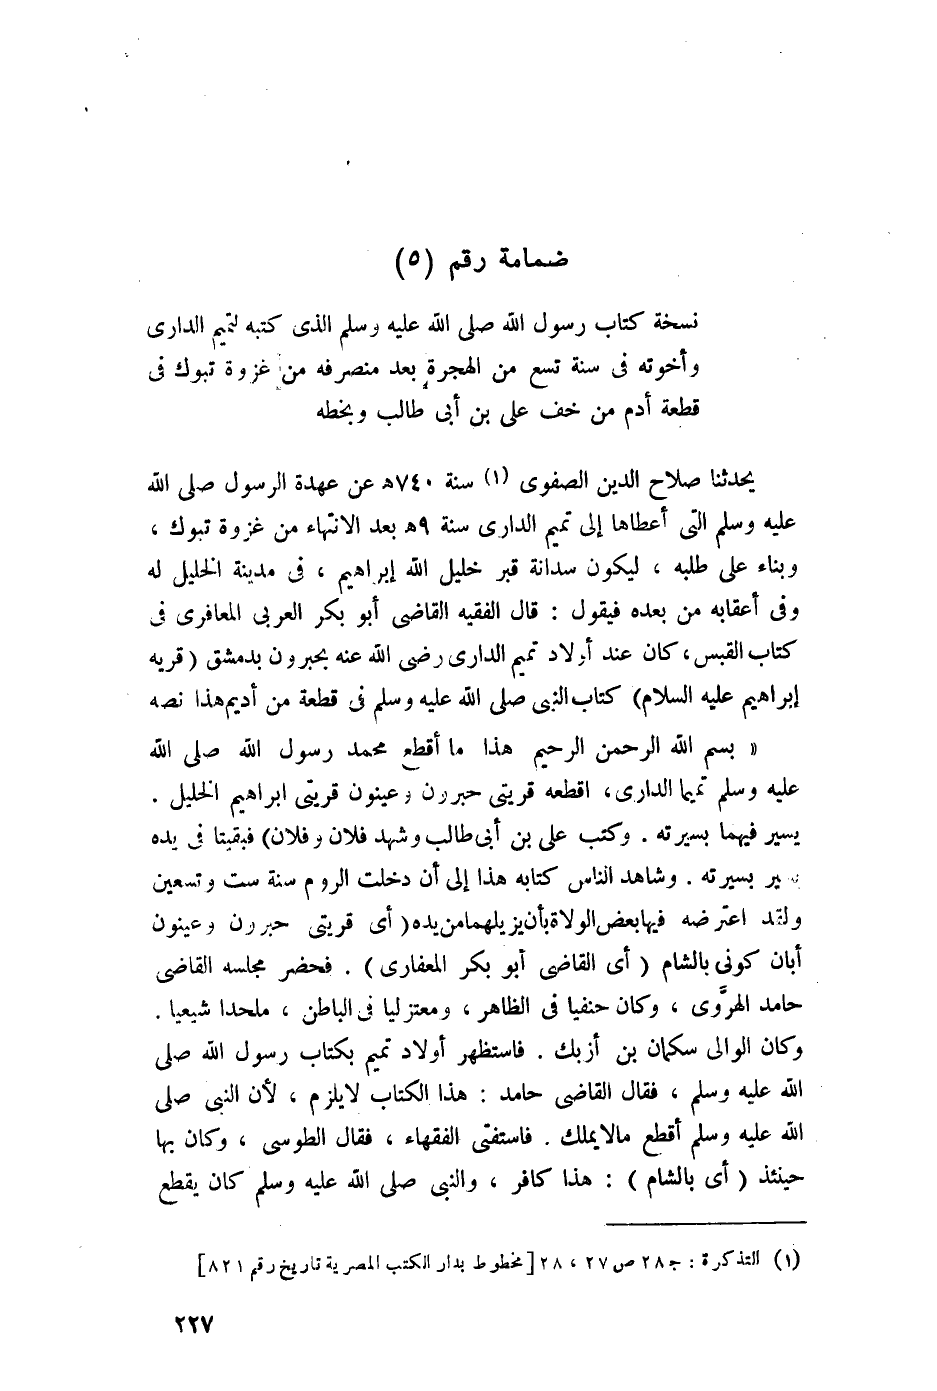 ضمامة رقم (٥)
نسخة كتاب رسول الله صلى الله عليه وسلم الذى كتبه لتميم الدارى
وأخوته فى سنة تسع من الهجرة بعد منصرفه من غزوة تبوك فى
قطعة أدم من خف على بن أبى طالب وبخطه
يحدثنا صلاح الدين الصفوى (١) سنة ٧٤٠ه عن عهدة الرسول صلى الله
عليه وسلم التى أعطاها إلى تميم الدارى سنة ٩ه بعد الانتهاء من غزوة تبوك ،
وبناء على طلبه ، ليكون سدانة قبر خليل الله إبراهيم ، فى مدينة الخليل له
وفى أعقابه من بعده فيقول : قال الفقيه القاضى أبو بكر العربى المعافرى فى
كتاب القبس، كان عند أولاد تميم الدارى رضى الله عنه بحبرون بدمشق (قريه
إبراهيم عليه السلام) كتاب النبى صلى الله عليه وسلم فى قطعة من أديم هذا نصه
« بسم الله الرحمن الرحيم هذا ما أقطع محمد رسول الله صلى الله
عليه وسلم تميما الدارى، اقطعه قريتى حبررن وعينون قريتى ابراهيم الخليل .
يسير فيهما بسيرته . وكتب على بن أبى طالب وشهد فلان وفلان) فبقيتا فى يده
يسير بسيرته . وشاهد الناس كتابه هذا إلى أن دخلت الروم سنة ست وتسعين
ولقد اعترضه فيها بعض الولاة بأن يزيلهما من يده (أى قريتى حبررن وعينون
أبان كونى بالشام (أى القاضى أبو بكر المعفارى) . فحضر مجلسه القاضى
حامد الهروَّى ، وكان حنفيا فى الظاهر ، ومعتزليا فى الباطن ، ملحدا شيعيا .
وكان الوالى سكمان بن أزبك . فاستظهر أولاد تميم بكتاب رسول الله صلى
الله عليه وسلم ، فقال القاضى حامد : هذا الكتاب لايلزم ، لأن النبى صلى
الله عليه وسلم أقطع مالايملك . فاستفتى الفقهاء ، فقال الطوسى ، وكان بها
حينئذ (أى بالشام) : هذا كافر ، والنبى صلى الله عليه وسلم كان يقطع
(١) التذكرة : ج٢٨ ص ٢٧ ، ٢٨ [مخطوط بدار الكتب المصرية تاريخ رقم ٨٢١]
٢٢٧